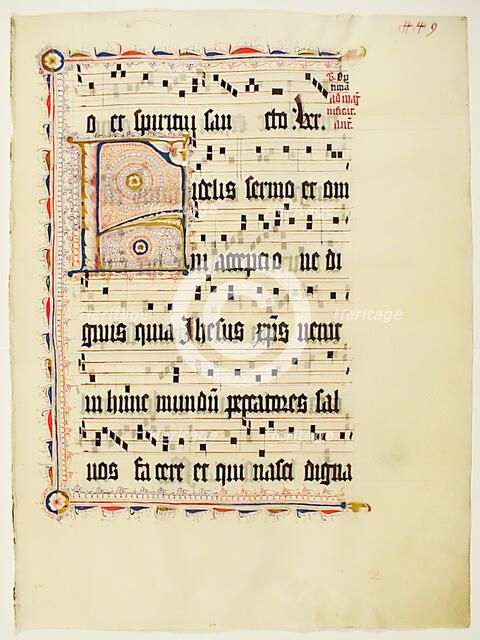 449
o et spiritui san cto .lxx.
ad mag
nificat
ant.
Fidelis sermo et om
ni acceptio ne di
gnus quia Jhesus xp̄s venit
in hunc mundū peccatores sal
uos fa cere et qui nasci digna
Heritage Heritage